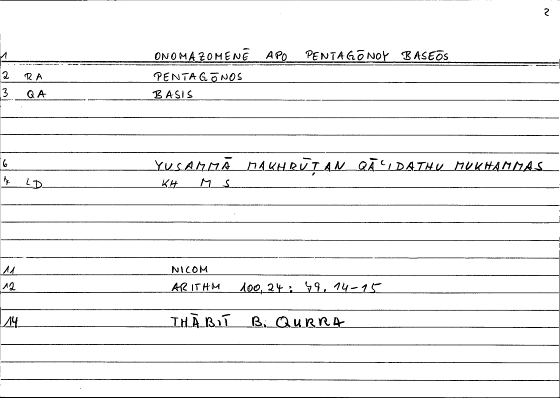 2
1 ONOMAZOMENĒ APO PENTAGŌNOY BASEŌS
2 RA PENTAGŌNOS
3 QA BASIS
6 YUSAMMĀ MAKHRŪṬAN QĀʿIDATHU MUKHAMMAS
4 ʿD KH M S
11 NICOM
12 ARITHM 100,24: 79.14-15
14 THĀBIT B. QURRA